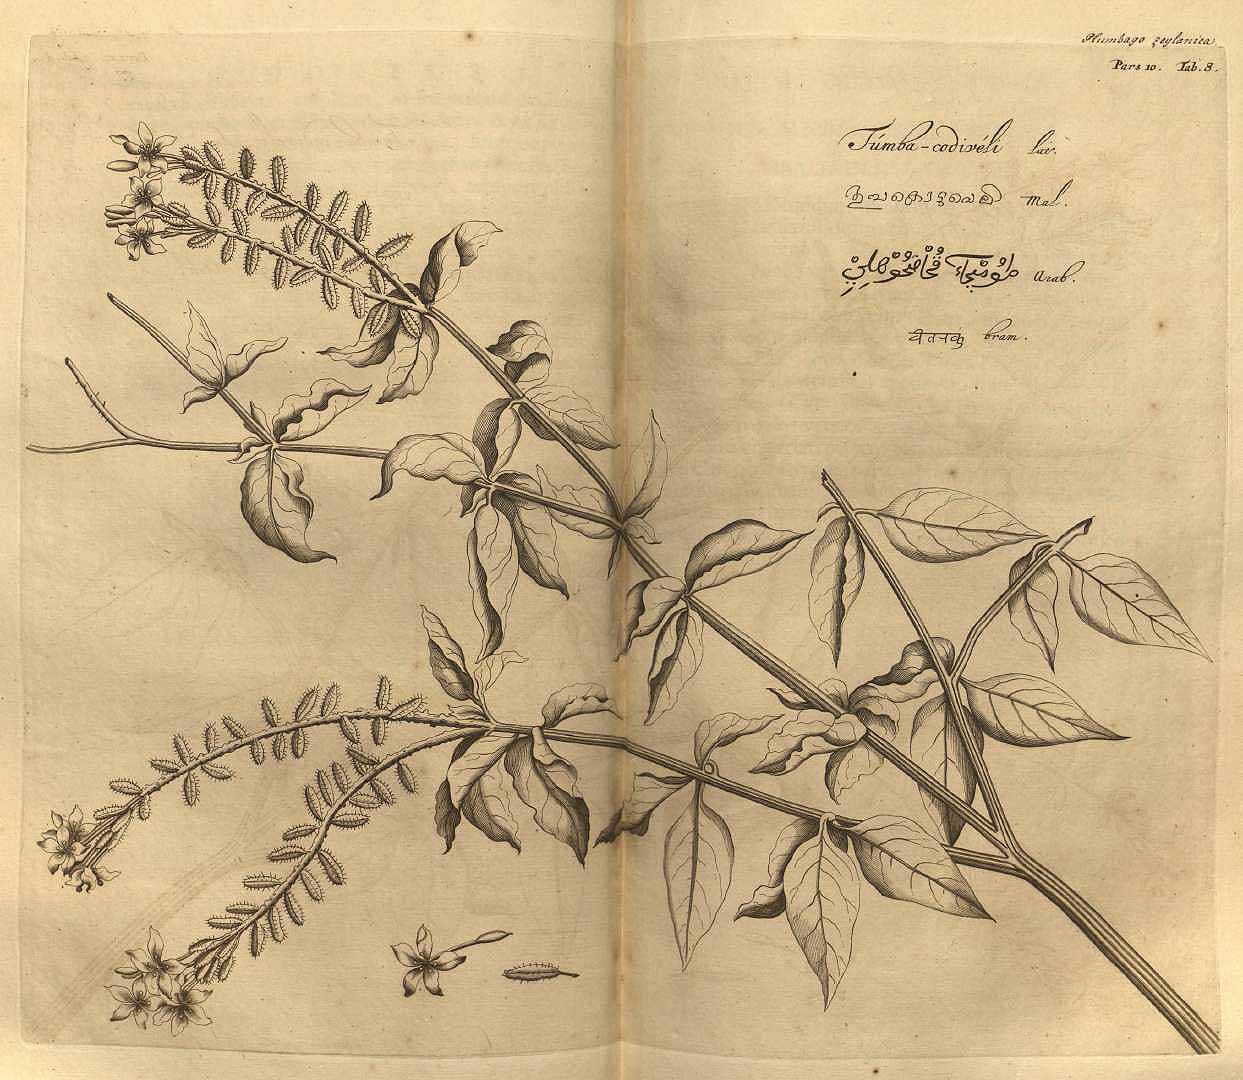 Plumbago zeylanica.
Pars 10. Tab. 8.
Túmba-codivéli Lat.
തുമ്പകൊടുവെലി Mal.
Arab.
चीतरक bram.